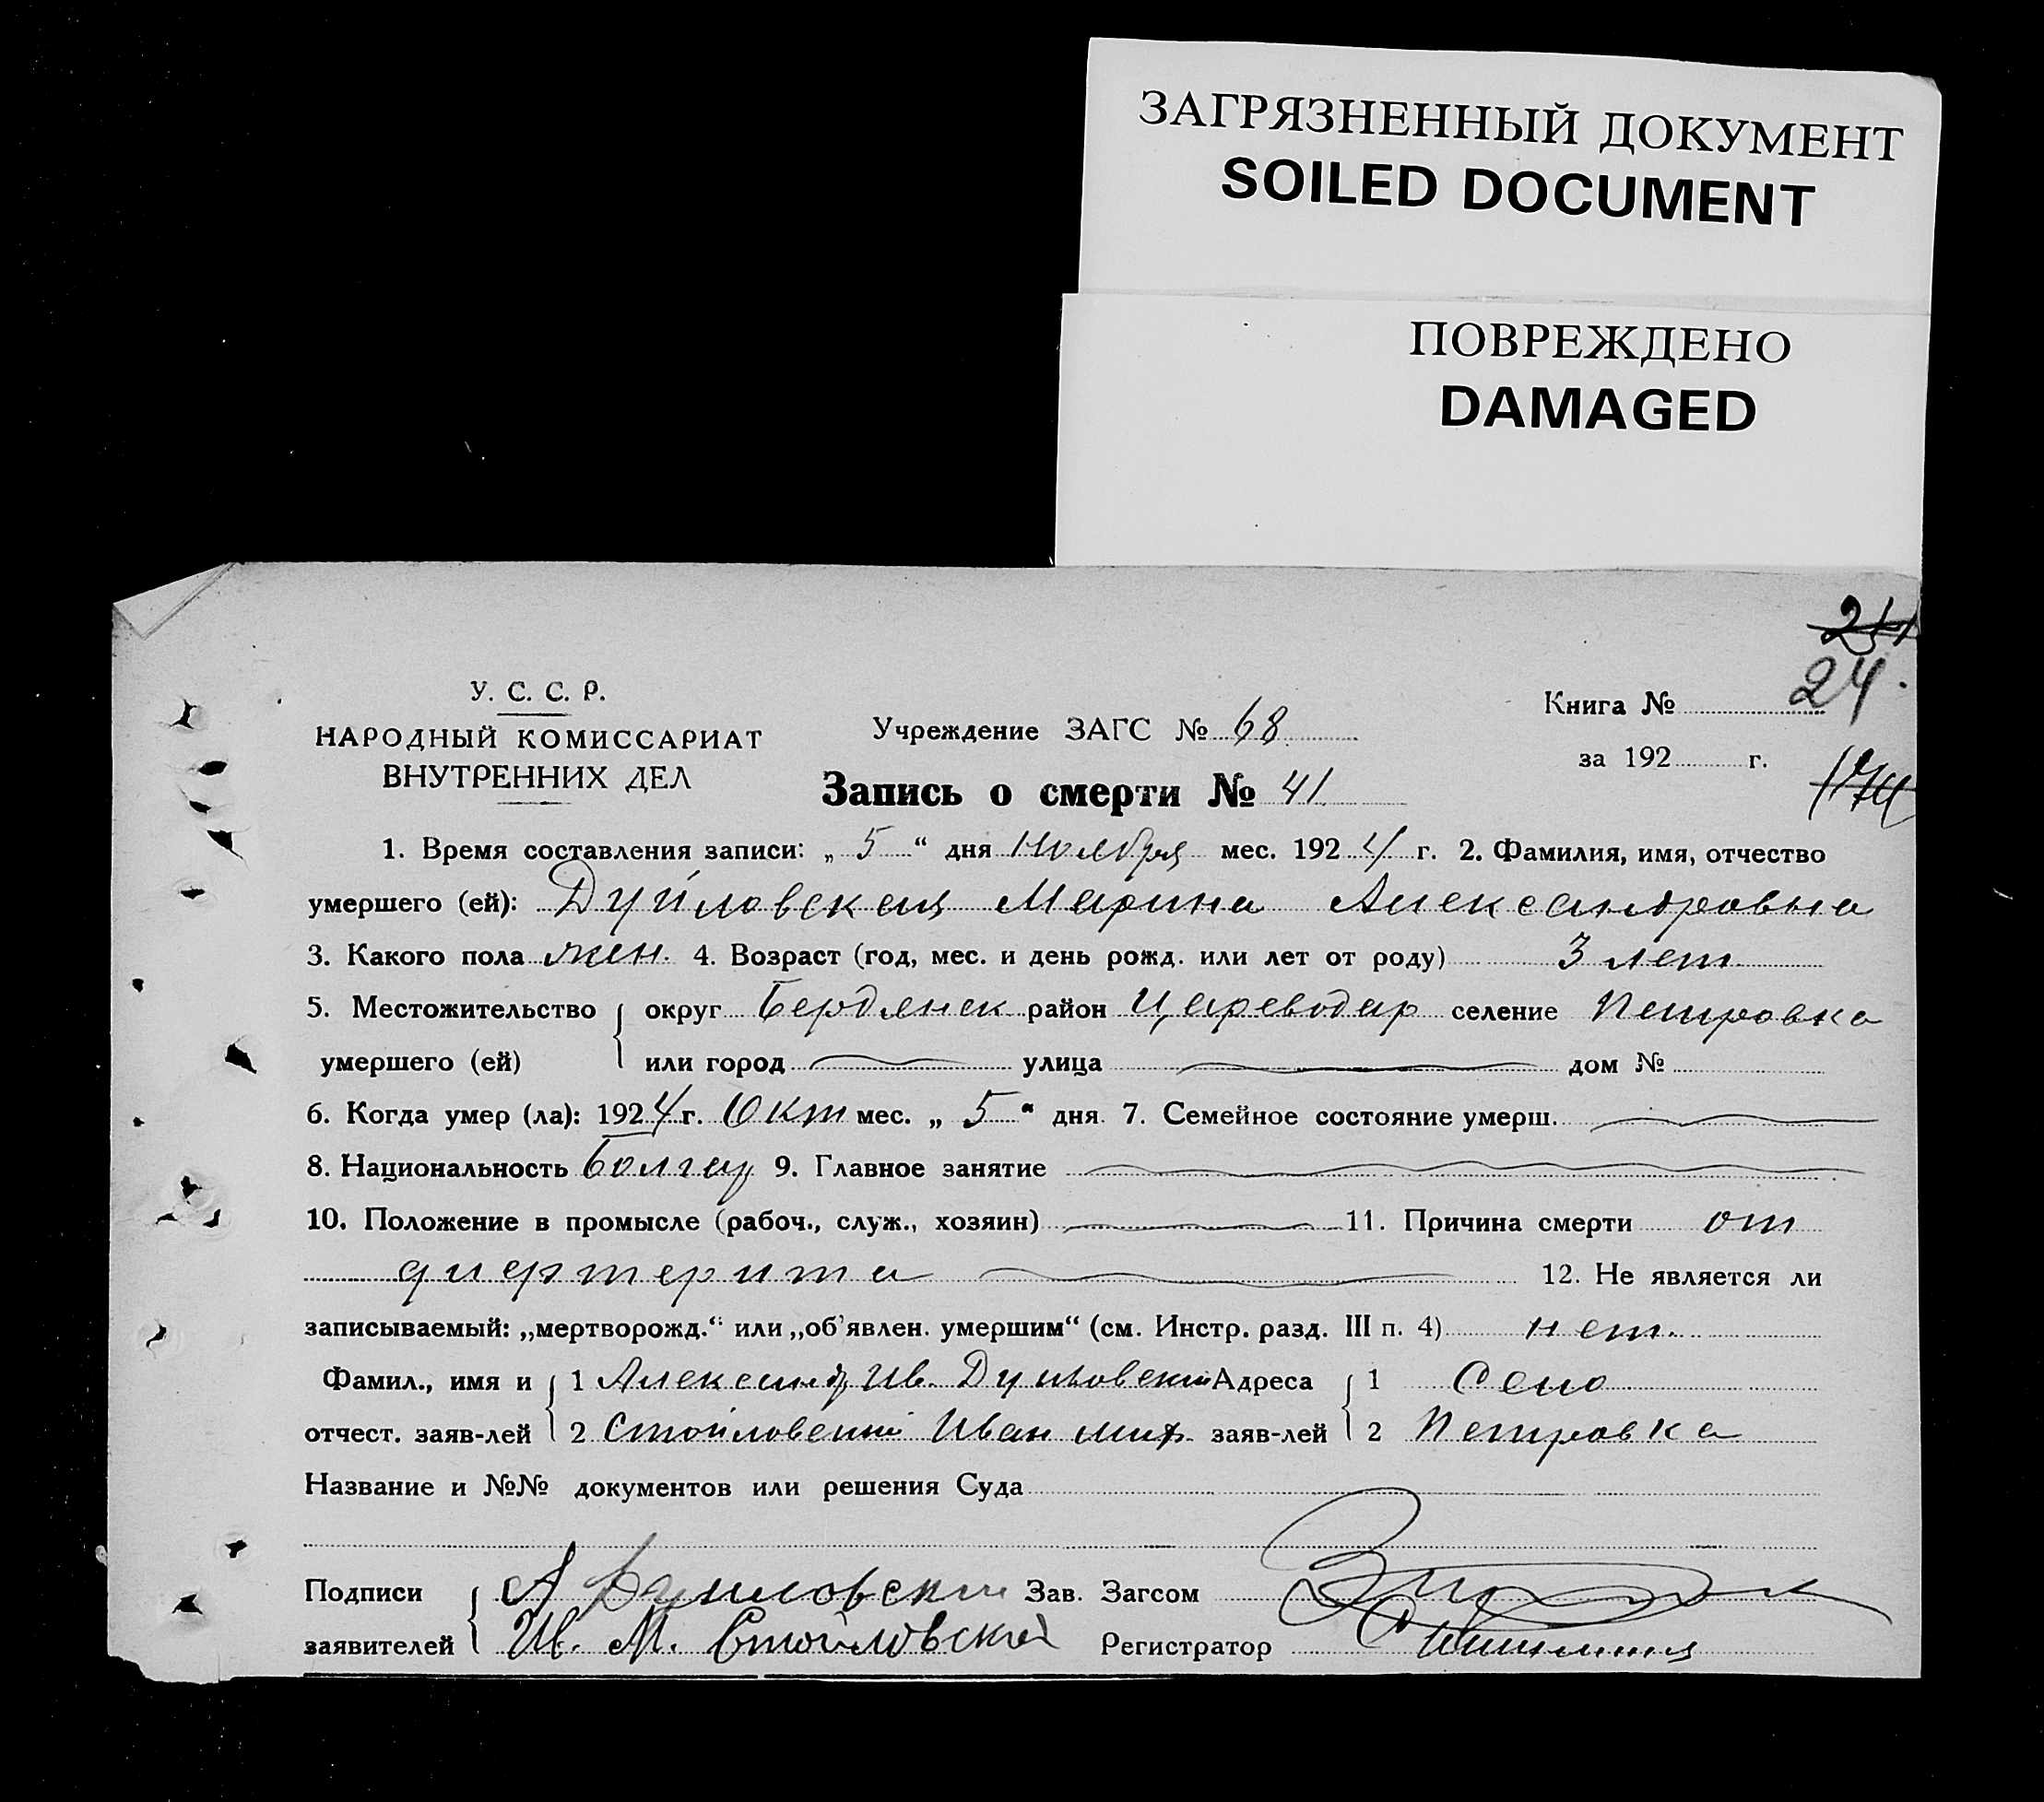 ЗАГРЯЗНЕННЫЙ ДОКУМЕНТ
SOILED DOCUMENT
ПОВРЕЖДЕНО
DAMAGED
24.
У. С. С. Р.
НАРОДНЫЙ КОМИССАРИАТ
ВНУТРЕННИХ ДЕЛ
Учреждение ЗАГС № 68
Книга №
за 192 г.
Запись о смерти № 41
1. Время составления записи: „ 5 “ дня Ноября мес. 192 4 г. 2. Фамилия, имя, отчество
умершего (ей): Дуйловская Марина Александровна
3. Какого пола жен. 4. Возраст (год, мес. и день рожд. или лет от роду) 3 лет
5. Местожительство округ Бердянск район Цареводар селение Петровка
умершего (ей) или город улица дом №
6. Когда умер (ла): 192 4 г. Окт мес. „ 5 “ дня. 7. Семейное состояние умерш.
8. Национальность Болгар 9. Главное занятие
10. Положение в промысле (рабоч., служ., хозяин) 11. Причина смерти от
дифтерита 12. Не является ли
записываемый: „мертворожд.“ или „об'явлен. умершим“ (см. Инстр. разд. III п. 4) нет.
Фамил., имя и 1 Александр Ив. Дуйловский Адреса 1 Село
отчест. заяв-лей 2 Стойловский Иван Мих. заяв-лей 2 Петровка
Название и №№ документов или решения Суда
Подписи А Дуйловский Зав. Загсом
заявителей Ив. М. Стойловский Регистратор